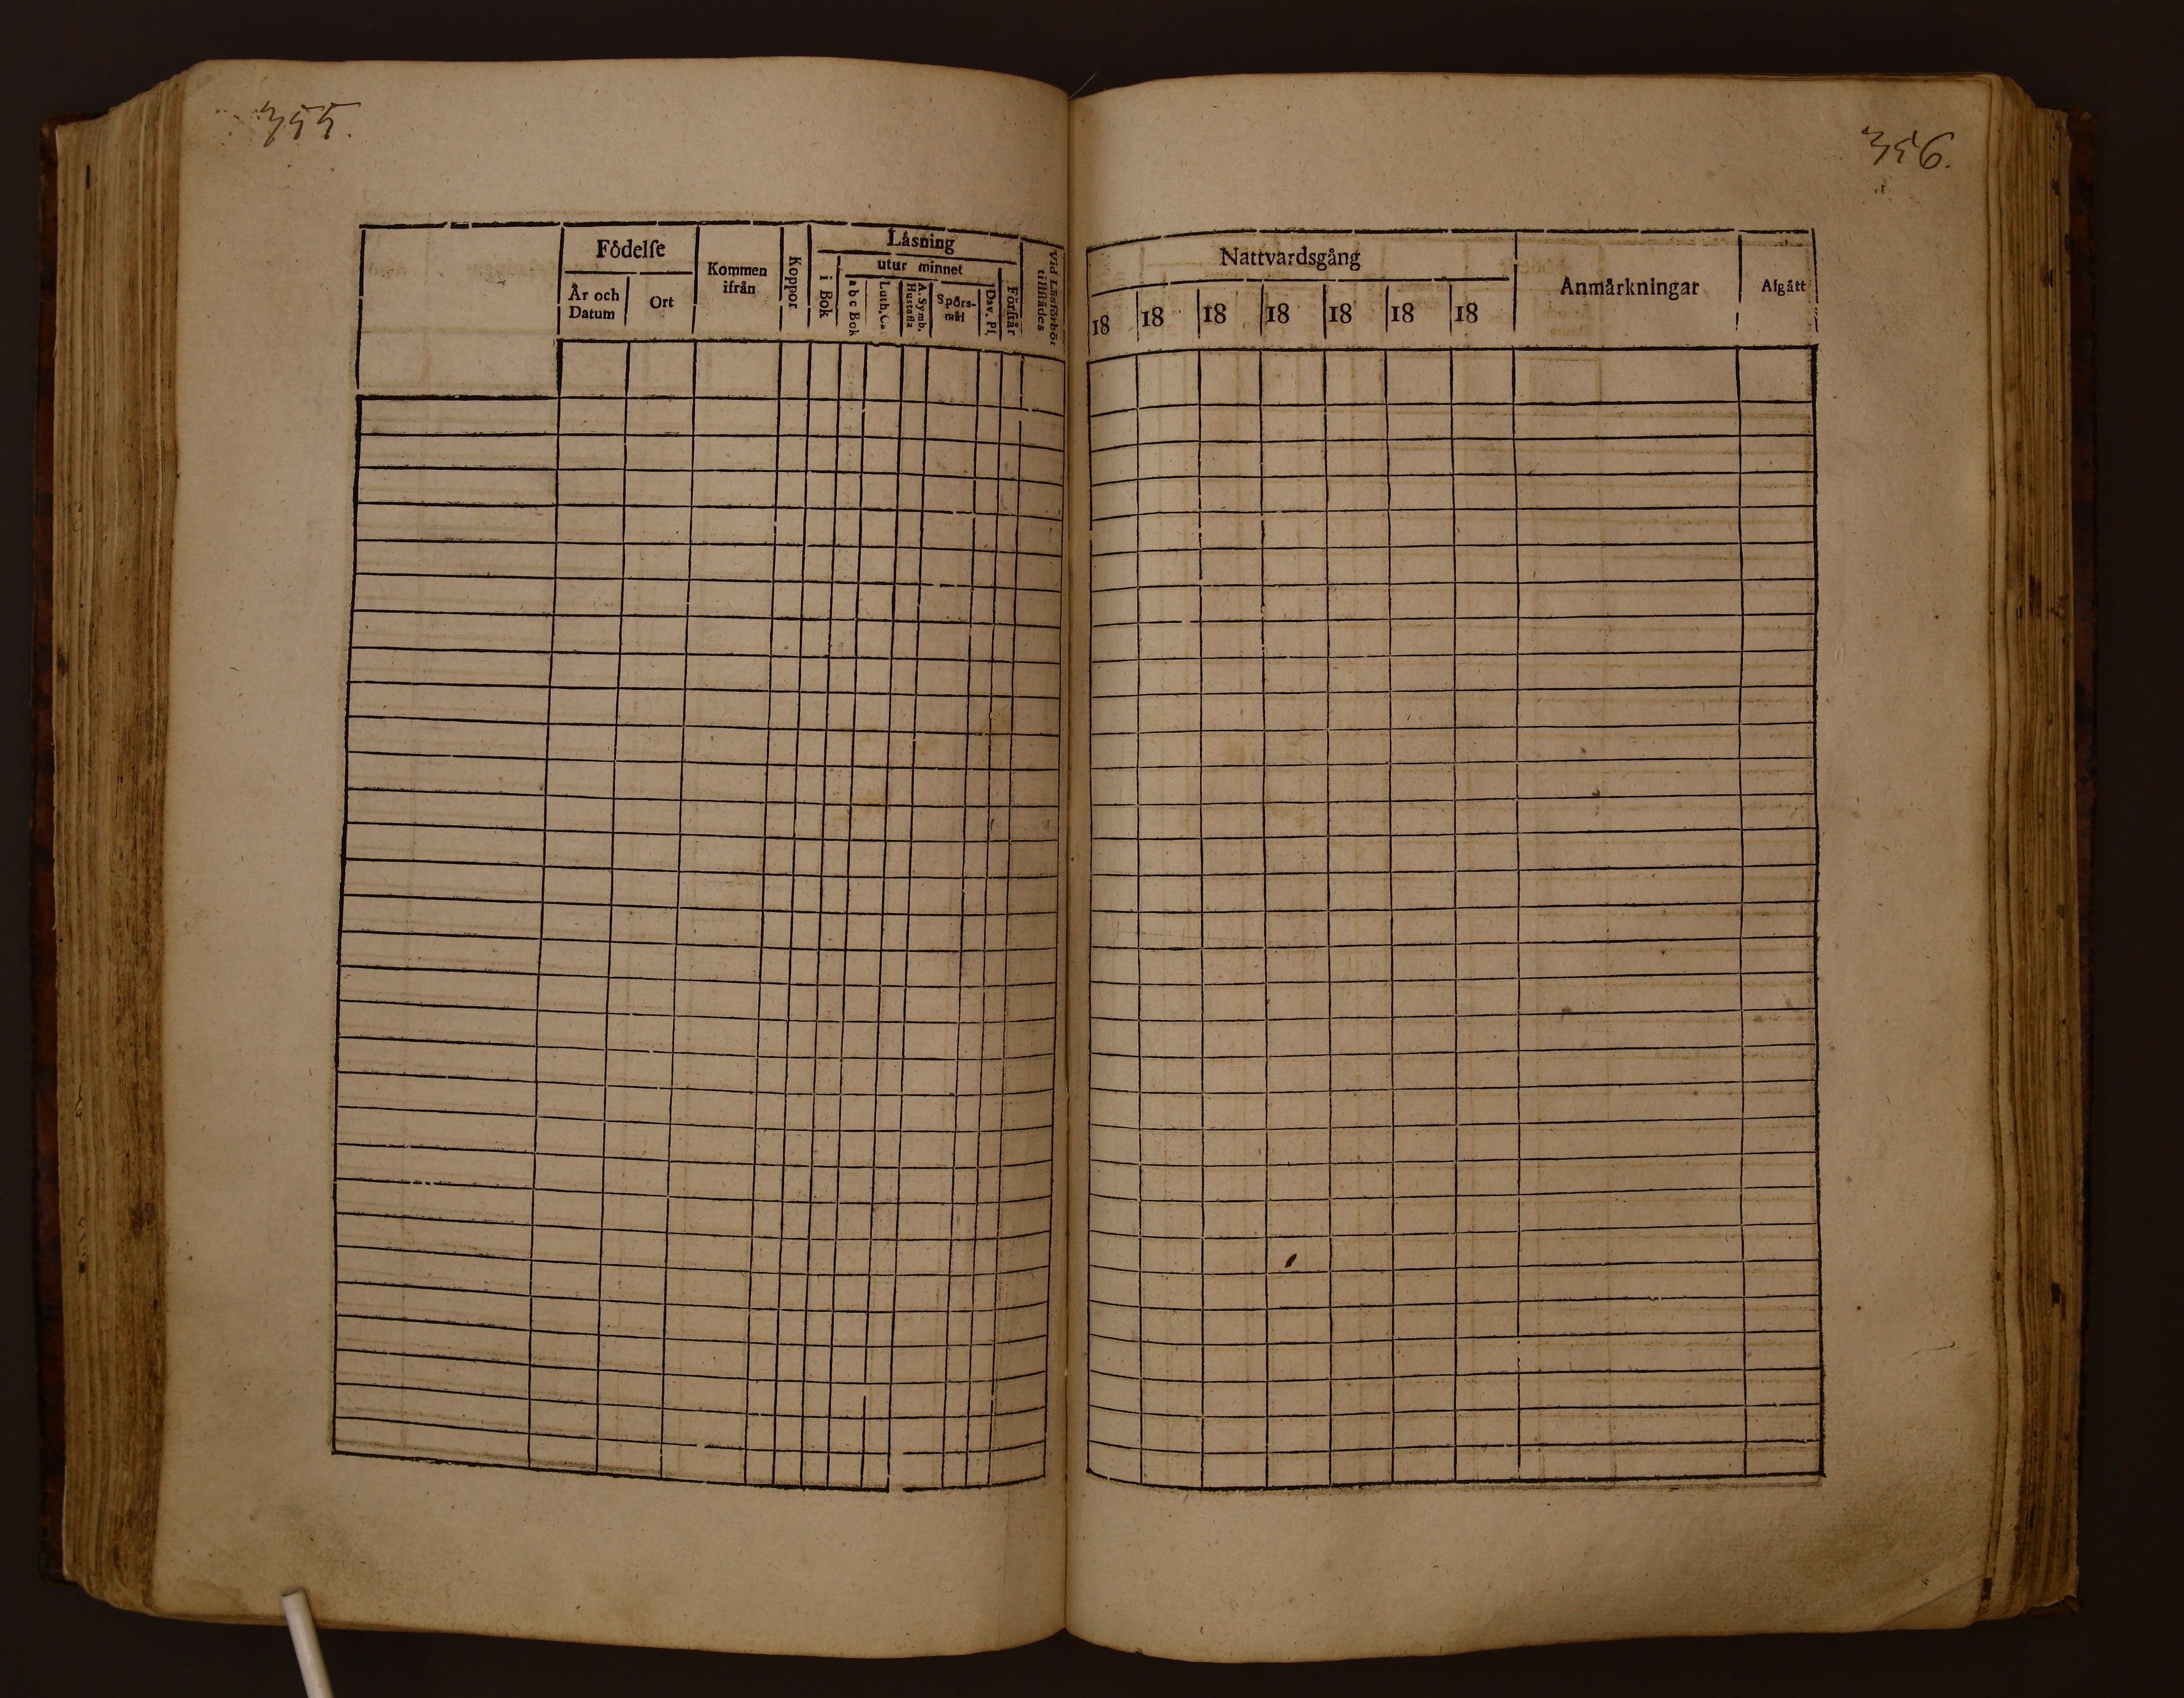 355.
Födelſe
År och Datum
Ort
Kommen ifrån
Koppor
Läsning
i Bok
utur minnet
a b c Bok
Luth. Ca
A. Symb. Hustafla
Spörs-mål
Dav. Pſ.
Förſtår
Vid Läsförhör tillſtädes
356.
Nattvardsgång
18 18 18 18 18 18 18
Anmärkningar
Afgått